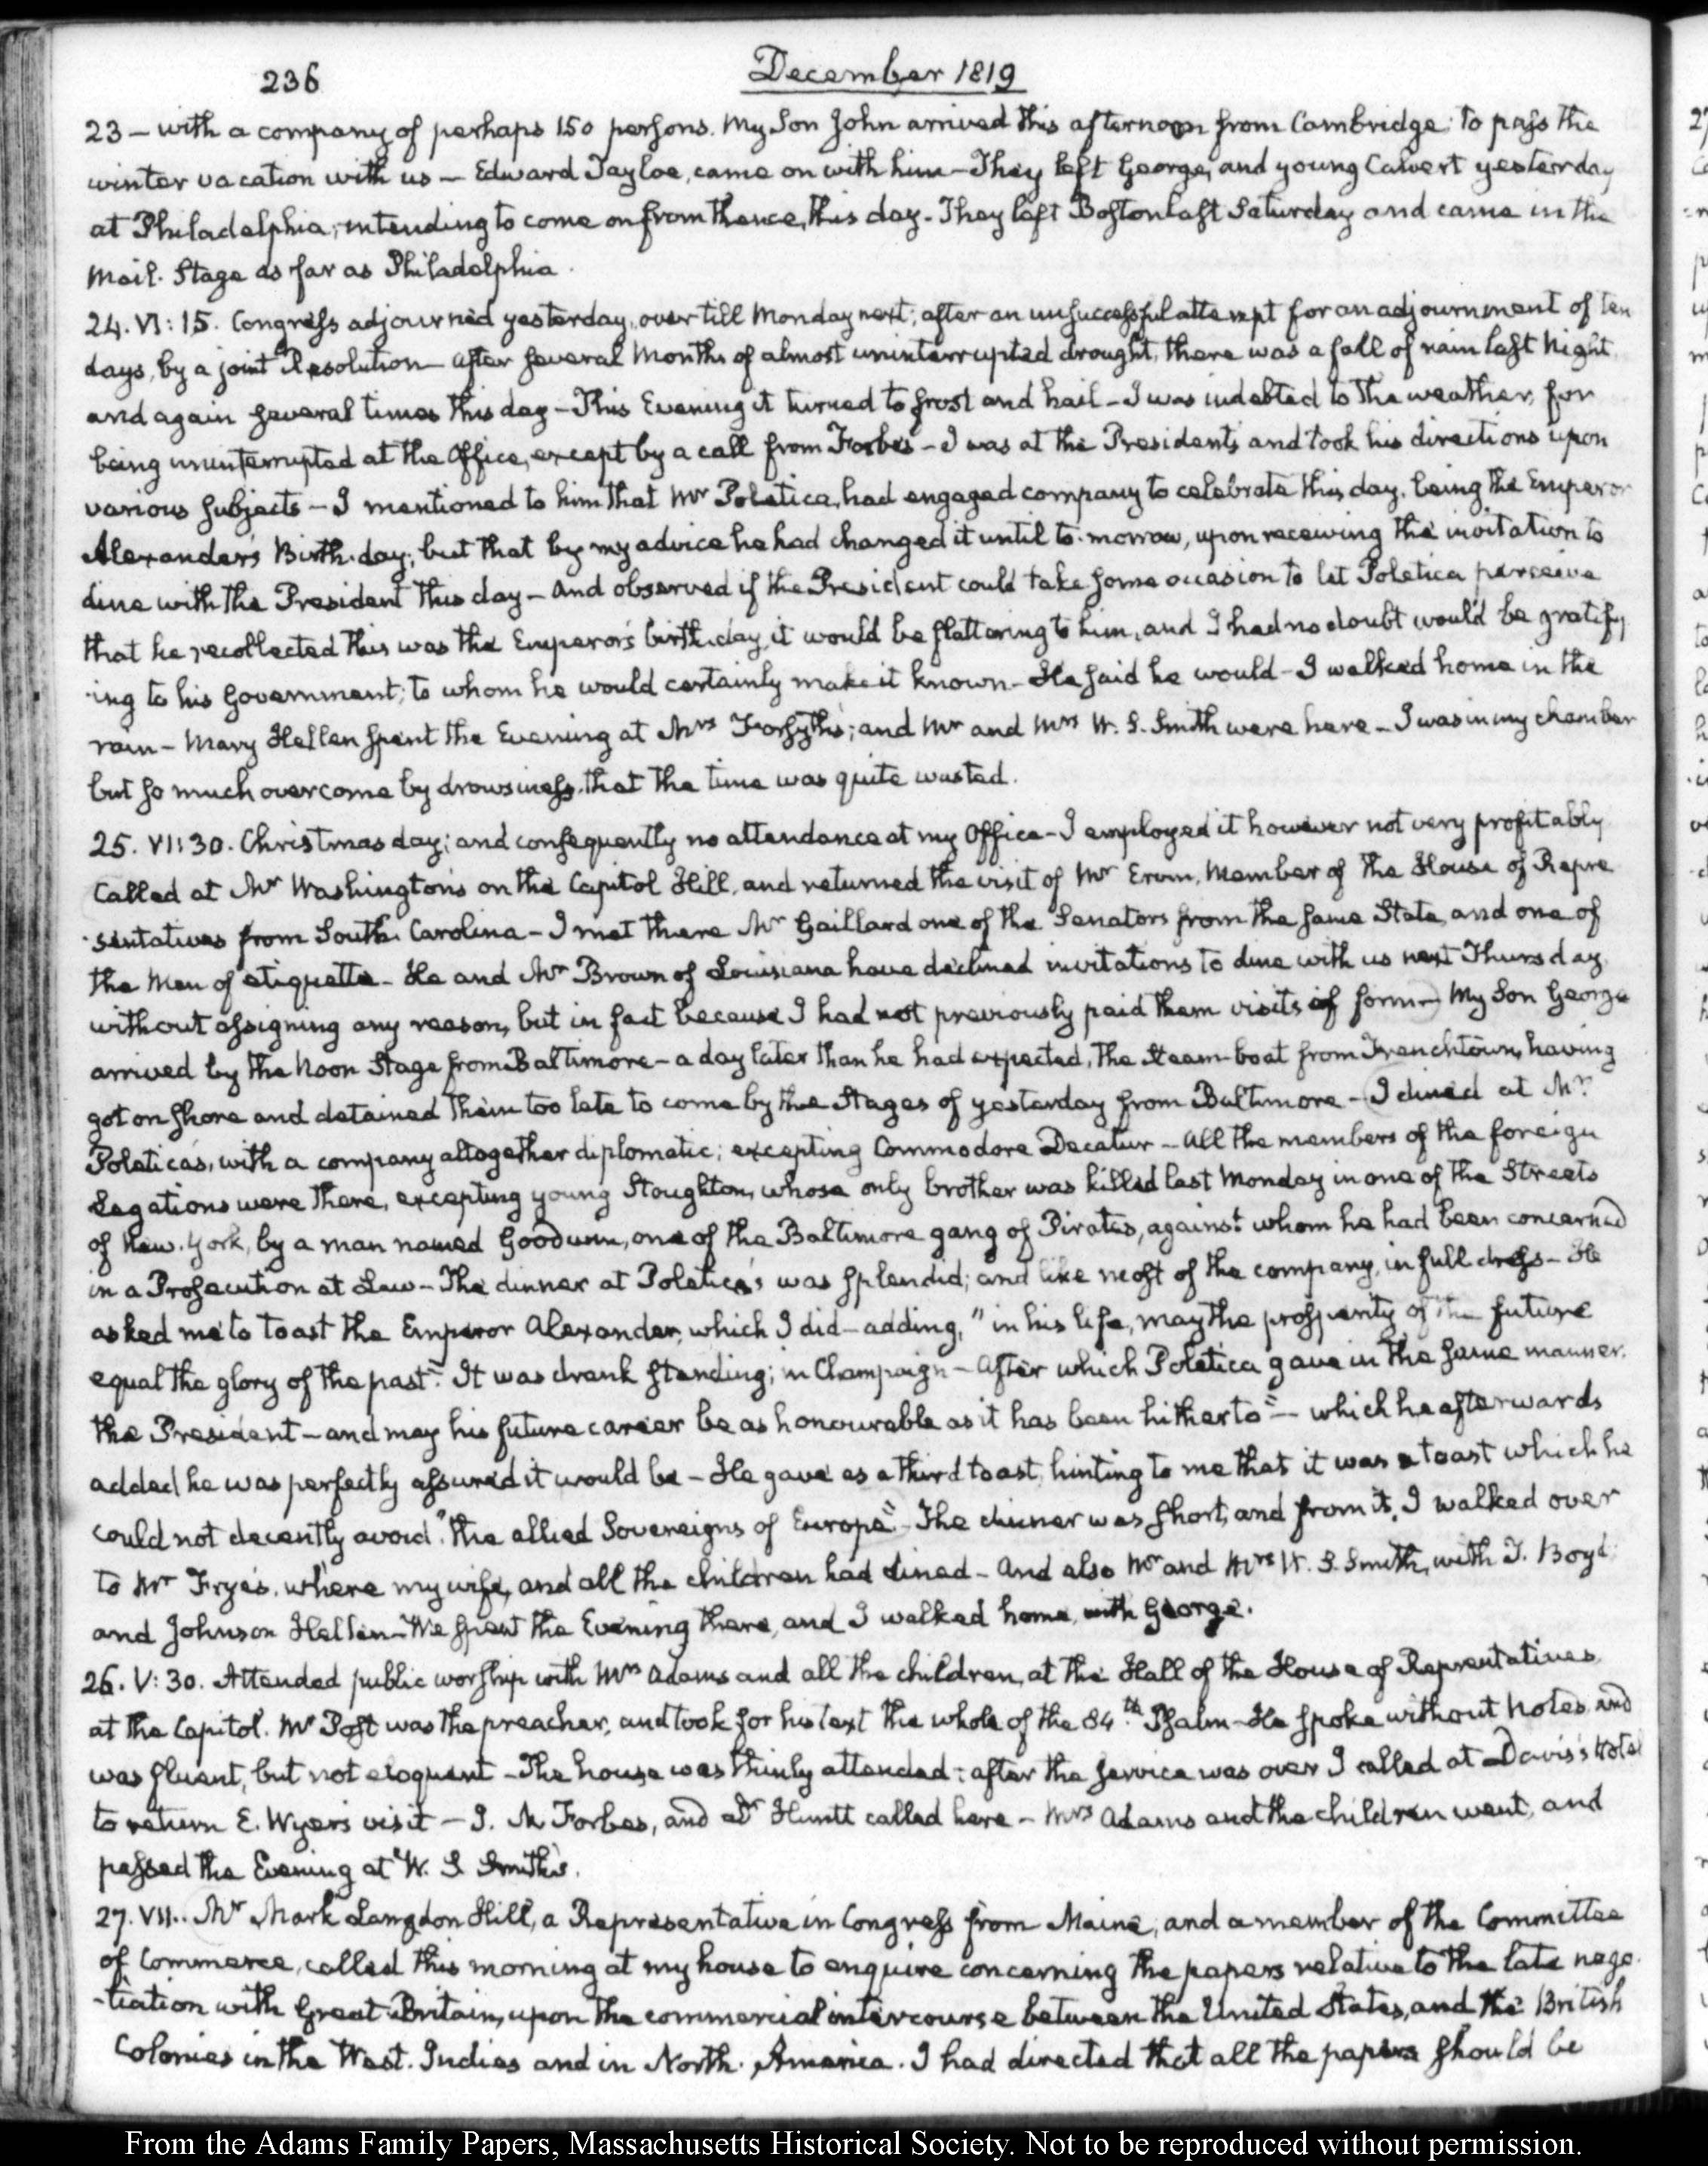 236
December 1819
23 – with a company of perhaps 150 persons. My Son John arrived this afternoon from Cambridge; to pass the
winter vacation with us – Edward Tayloe, came on with him – They left George, and young Calvert yesterday
at Philadelphia, intending to come on from thence, this day – They left Boston last Saturday and came in the
Mail. Stage as far as Philadelphia.
24. VI: 15. Congress adjourned yesterday, over till Monday next; after an unsuccessful attempt for an adjournment of ten
days, by a joint Resolution – After several Months of almost uninterrupted drought, there was a fall of rain last Night,
and again several times this day – This Evening it turned to frost and hail – I was indebted to the weather, for
being uninterrupted at the Office, except by a call from Forbes – I was at the Presidents and took his directions upon
various subjects – I mentioned to him that Mr Poletica, had engaged company to celebrate this day, being the Emperor
Alexander's Birth-day; but that by my advice he had changed it until to-morrow, upon receiving the invitation to
dine with the President this day – And observed if the President could take some occasion to let Poletica perceive
that he recollected this was the Emperor's birth-day, it would be flattering to him, and I had no doubt would be gratify
-ing to his Government; to whom he would certainly make it known – He said he would – I walked home in the
rain – Mary Hellen spent the Evening at Mrs Forsyth's; and Mr and Mrs W. S. Smith were here – I was in my chamber
but so much overcome by drowsiness, that the time was quite wasted.
25. VI: 30. Christmas day; and consequently no attendance at my Office – I employed it however not very profitably
Called at Mr Washington's on the Capitol Hill, and returned the visit of Mr Ervin, Member of the House of Repre
-sentatives from South Carolina – I met there Mr Gaillard one of the Senators from the same State, and one of
the Men of etiquette – He and Mr Brown of Louisiana have declined invitations to dine with us next Thursday,
without assigning any reason, but in fact because I had not previously paid them visits of form – My Son George
arrived by the Noon Stage from Baltimore – a day later than he had expected, the Steam-boat from Frenchtown, having
got on shore and detained them too late to come by the Stages of yesterday from Baltimore – I dined at Mr
Poletica's, with a company altogether diplomatic; excepting Commodore Decatur – All the members of the foreign
Legations were there, excepting young Stoughton, whose only brother was killed last Monday in one of the Streets
of New-York, by a man named Goodwin, one of the Baltimore gang of Pirates, against whom he had been concerned
in a Prosecution at Law – The dinner at Poletica's was splendid; and like most of the company, in full dress – He
asked me to toast the Emperor Alexander, which I did – adding, "in his life, may the prosperity of the future
equal the glory of the past". It was drank standing; in Champaign – After which Poletica gave in the same manner.
the President – and may his future career be as honourable as it has been hitherto" – which he afterwards
added he was perfectly assured it would be – He gave as a third toast, hinting to me that it was a toast which he
could not decently avoid "the allied Sovereigns of Europe" – The dinner was short, and from it, I walked over
to Mr Frye's, where my wife, and all the children had dined – And also Mr and Mrs W. S. Smith, with T. Boyd
and Johnson Hellen – We spent the Evening there, and I walked home, with George.
26. V: 30. Attended public worship with Mrs Adams and all the children, at the Hall of the House of Representatives
at the Capitol. Mr Post was the preacher, and took for his text the whole of the 84.th Psalm – He spoke without Notes, and
was fluent, but not eloquent – The house was thinly attended: after the service was over I called at Davis's Hotel
to return E. Wyer's visit – J. M Forbes, and Dr Huntt called here – Mrs Adams and the children went, and
passed the Evening at W. S. Smith's.
27. VII.. Mr Mark Langdon Hill, a Representative in Congress from Maine, and a member of the Committee
of Commerce, called this morning at my house to enquire concerning the papers relative to the late nego
-tiation with Great-Britain, upon the commercial intercourse between the United States, and the British
Colonies in the West. Indies and in North. America. I had directed that all the papers should be
From the Adams Family Papers, Massachusetts Historical Society. Not to be reproduced without permission.